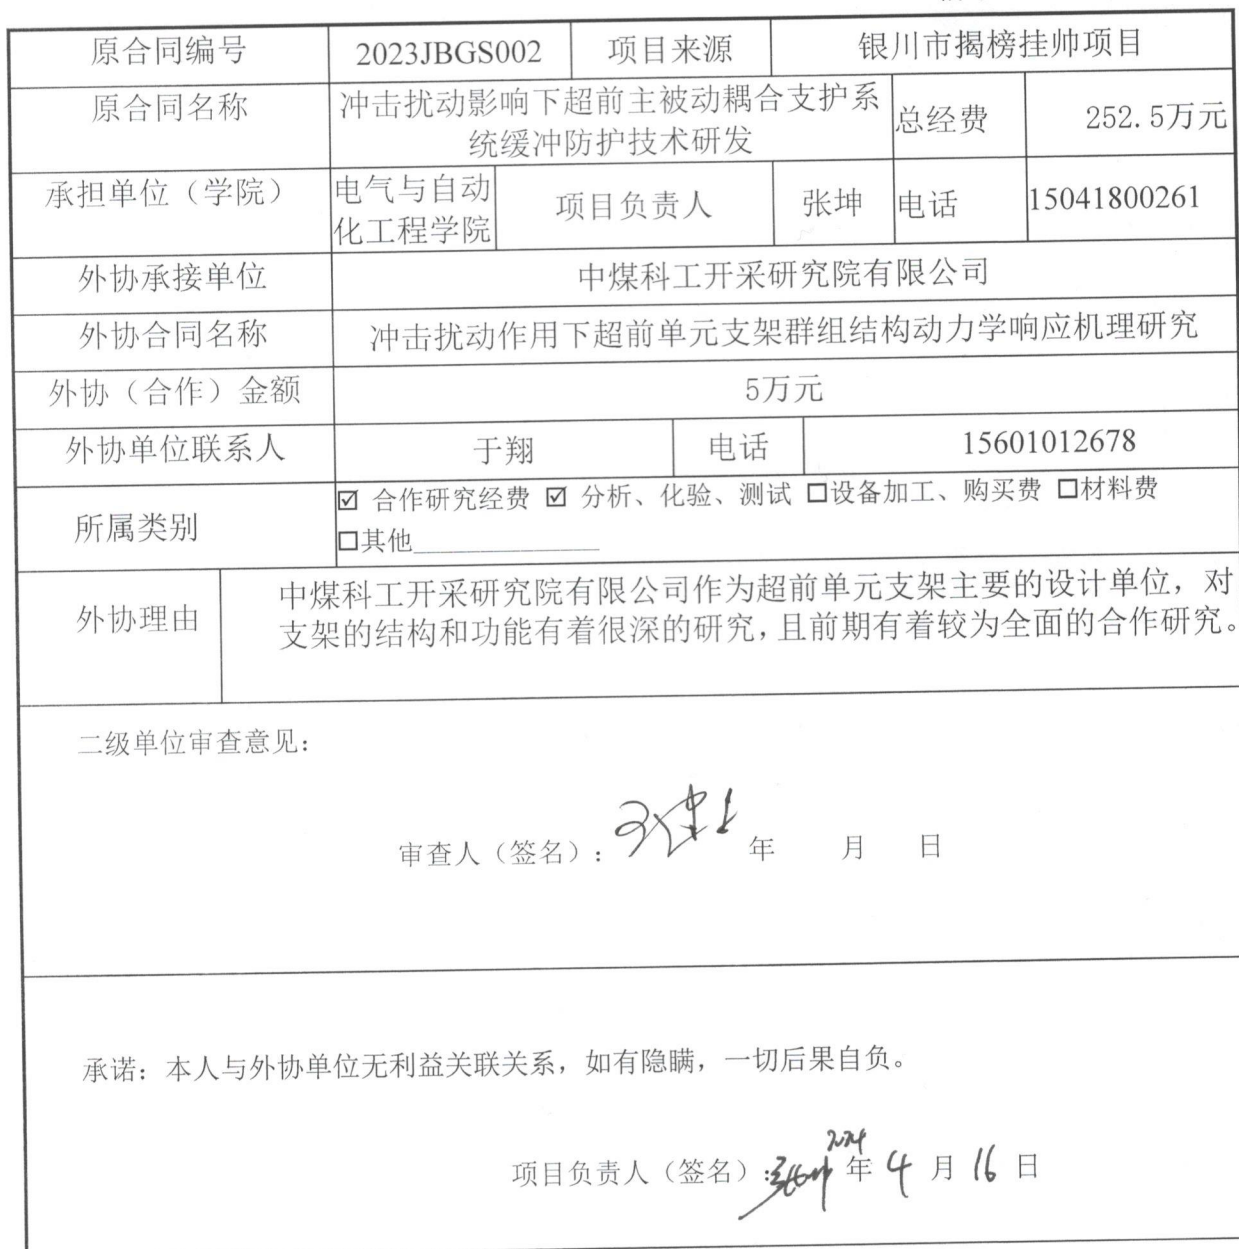 原合同编号 2023JBGS002 项目来源 银川市揭榜挂帅项目
原合同名称 冲击扰动影响下超前主被动耦合支护系
统缓冲防护技术研发 总经费 252.5万元
承担单位（学院） 电气与自动
化工程学院 项目负责人 张坤 电话 15041800261
外协承接单位 中煤科工开采研究院有限公司
外协合同名称 冲击扰动作用下超前单元支架群组结构动力学响应机理研究
外协（合作）金额 5万元
外协单位联系人 于翔 电话 15601012678
所属类别 ☑ 合作研究经费 ☑ 分析、化验、测试 □设备加工、购买费 □材料费
□其他____________
外协理由 中煤科工开采研究院有限公司作为超前单元支架主要的设计单位，对
支架的结构和功能有着很深的研究，且前期有着较为全面的合作研究。
二级单位审查意见：
审查人（签名）： 年 月 日
承诺：本人与外协单位无利益关联关系，如有隐瞒，一切后果自负。
项目负责人（签名）：张坤 2024年 4 月 16 日